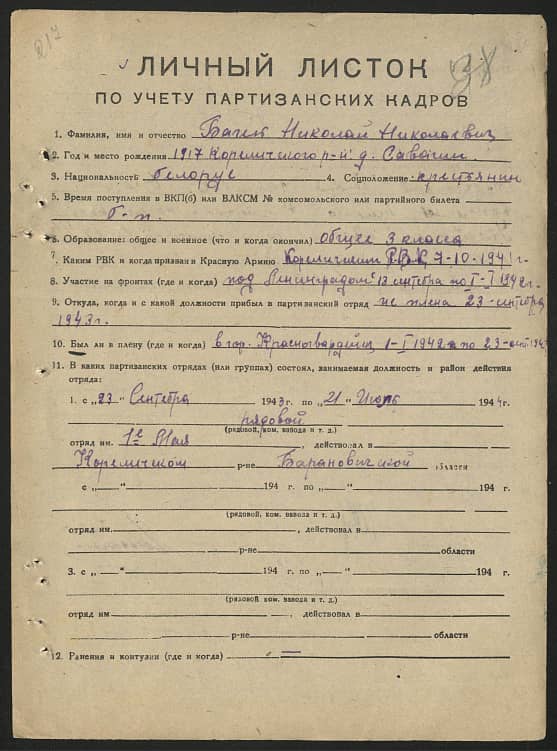 217
38
ЛИЧНЫЙ ЛИСТОК
ПО УЧЕТУ ПАРТИЗАНСКИХ КАДРОВ
1. Фамилия, имя и отчество Николай Николаевич
2. Год и место рождения 1917 Кореличского р-н д.
3. Национальность белорус 4. Соцположение крестьянин
5. Время поступления в ВКП(б) или ВЛКСМ № комсомольского или партийного билета
б-п.
6. Образование: общее и военное (что и когда окончил) общее 3 класса
7. Каким РВК и когда призван в Красную Армию Кореличским РВК 7-10-1941 г.
8. Участие на фронтах (где и когда) под Ленинградом 13 сентебра по 1-I 1942 г.
9. Откуда, когда и с какой должности прибыл в партизанский отряд из плена 23-сентебра
1943 г.
10. Был ли в плену (где и когда) в гор. 1-I 1942 по 23-сент 1943
11. В каких партизанских отрядах (или группах) состоял, занимаемая должность и район действия
отряда:
1. с „23“ Сентебра 1943 г. по „21“ 1944 г.
рядовой
(рядовой, ком. взвода и т. д.)
отряд им. 1е Мая, действовал в
Кореличском р-не Барановичской области
с „—“ 194 г. по „—“ 194 г.
(рядовой, ком. взвода и т. д.)
отряд им. , действовал в
р-не области
3. с „—“ 194 г. по „—“ 194 г.
(рядовой ком. взвода и т. д.)
отряд им , действовал в
р-не области
12. Ранения и контузии (где и когда) —